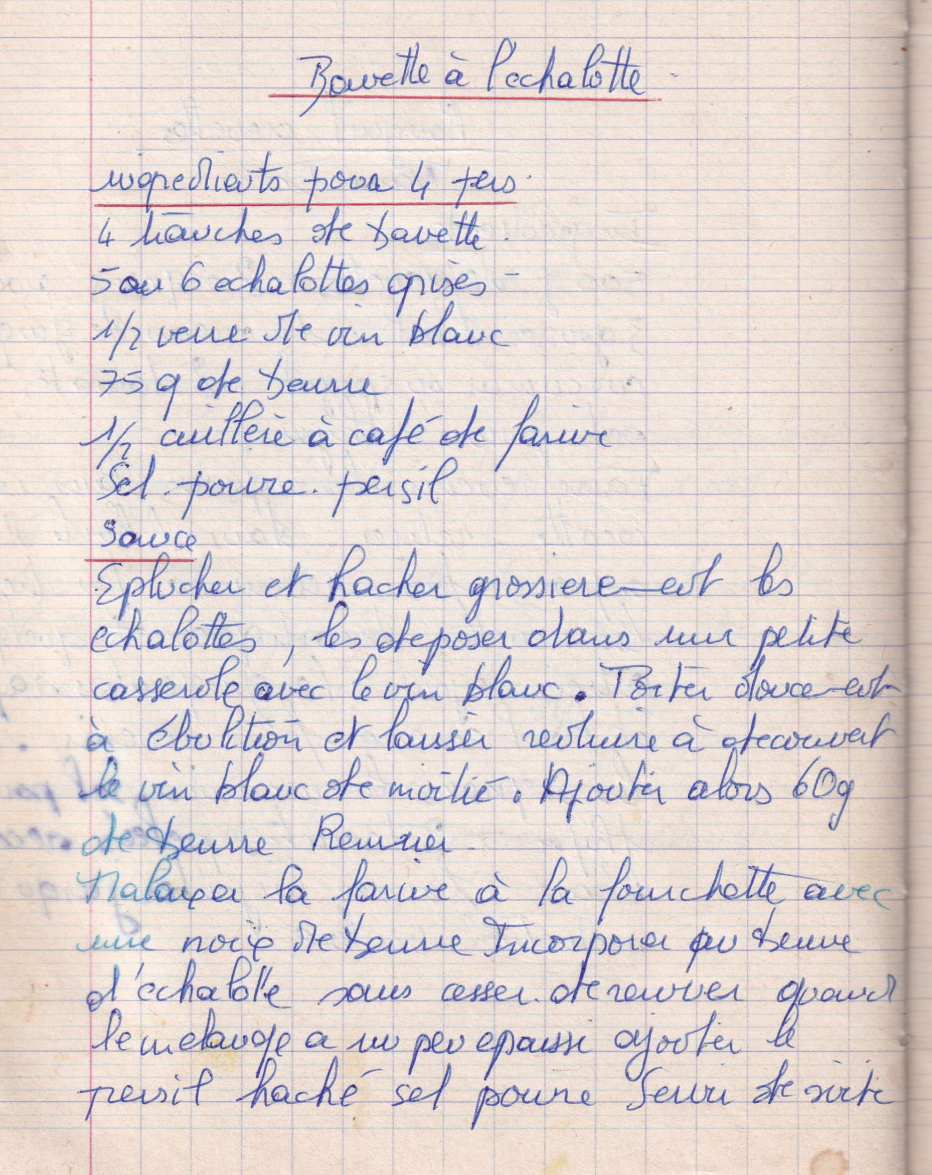 Bavette à l'echalotte
ingredients pour 4 pers.
4 tranches de bavette.
5 ou 6 echalottes grises
1/2 verre de vin blanc
75 g de beurre
1/2 cuillère à café de farine
Sel. poivre. persil
Sauce
Eplucher et hacher grossierement les
échalottes, les deposer dans une petite
casserole avec le vin blanc. Porter doucement
à ébulition et laisser reduire à decouvert
le vin blanc de moitié. Ajouter alors 60g
de beurre Remuer.
Malaxer la farine à la fourchette avec
une noix de beurre Incorporer au beurre
d'échalotte sans cesser de remuer quand
le melange a un peu epaissi ajouter le
persil haché sel poivre Servir de suite